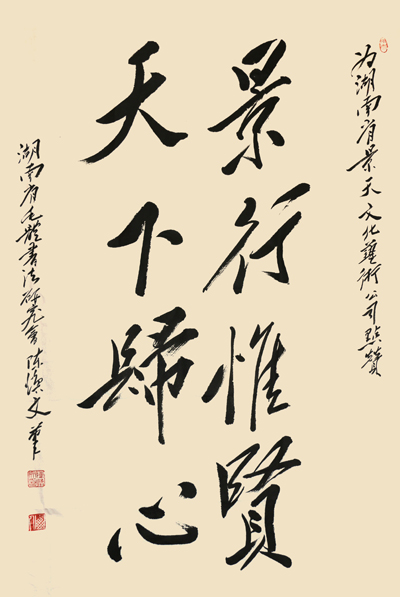 为湖南省景天文化艺术公司点赞
景行惟賢
天下歸心
湖南省毛體書法研究會陈漢文筆